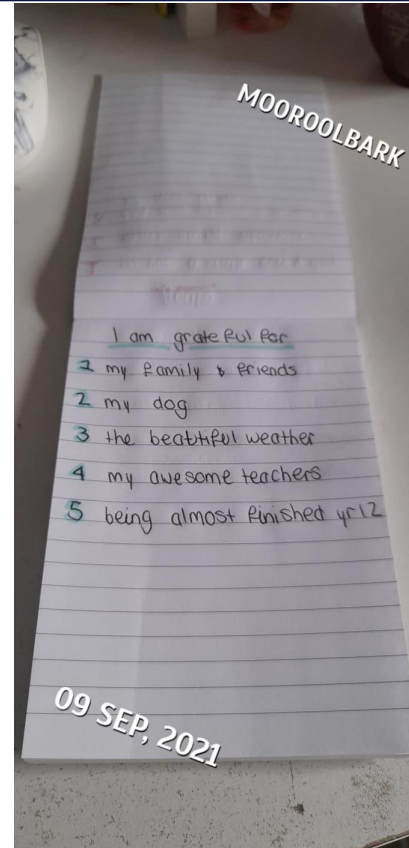 MOOROOLBARK
I am grateful for
1 my family & friends
2 my dog
3 the beatiful weather
4 my awesome teachers
5 being almost finished yr12
09 SEP, 2021